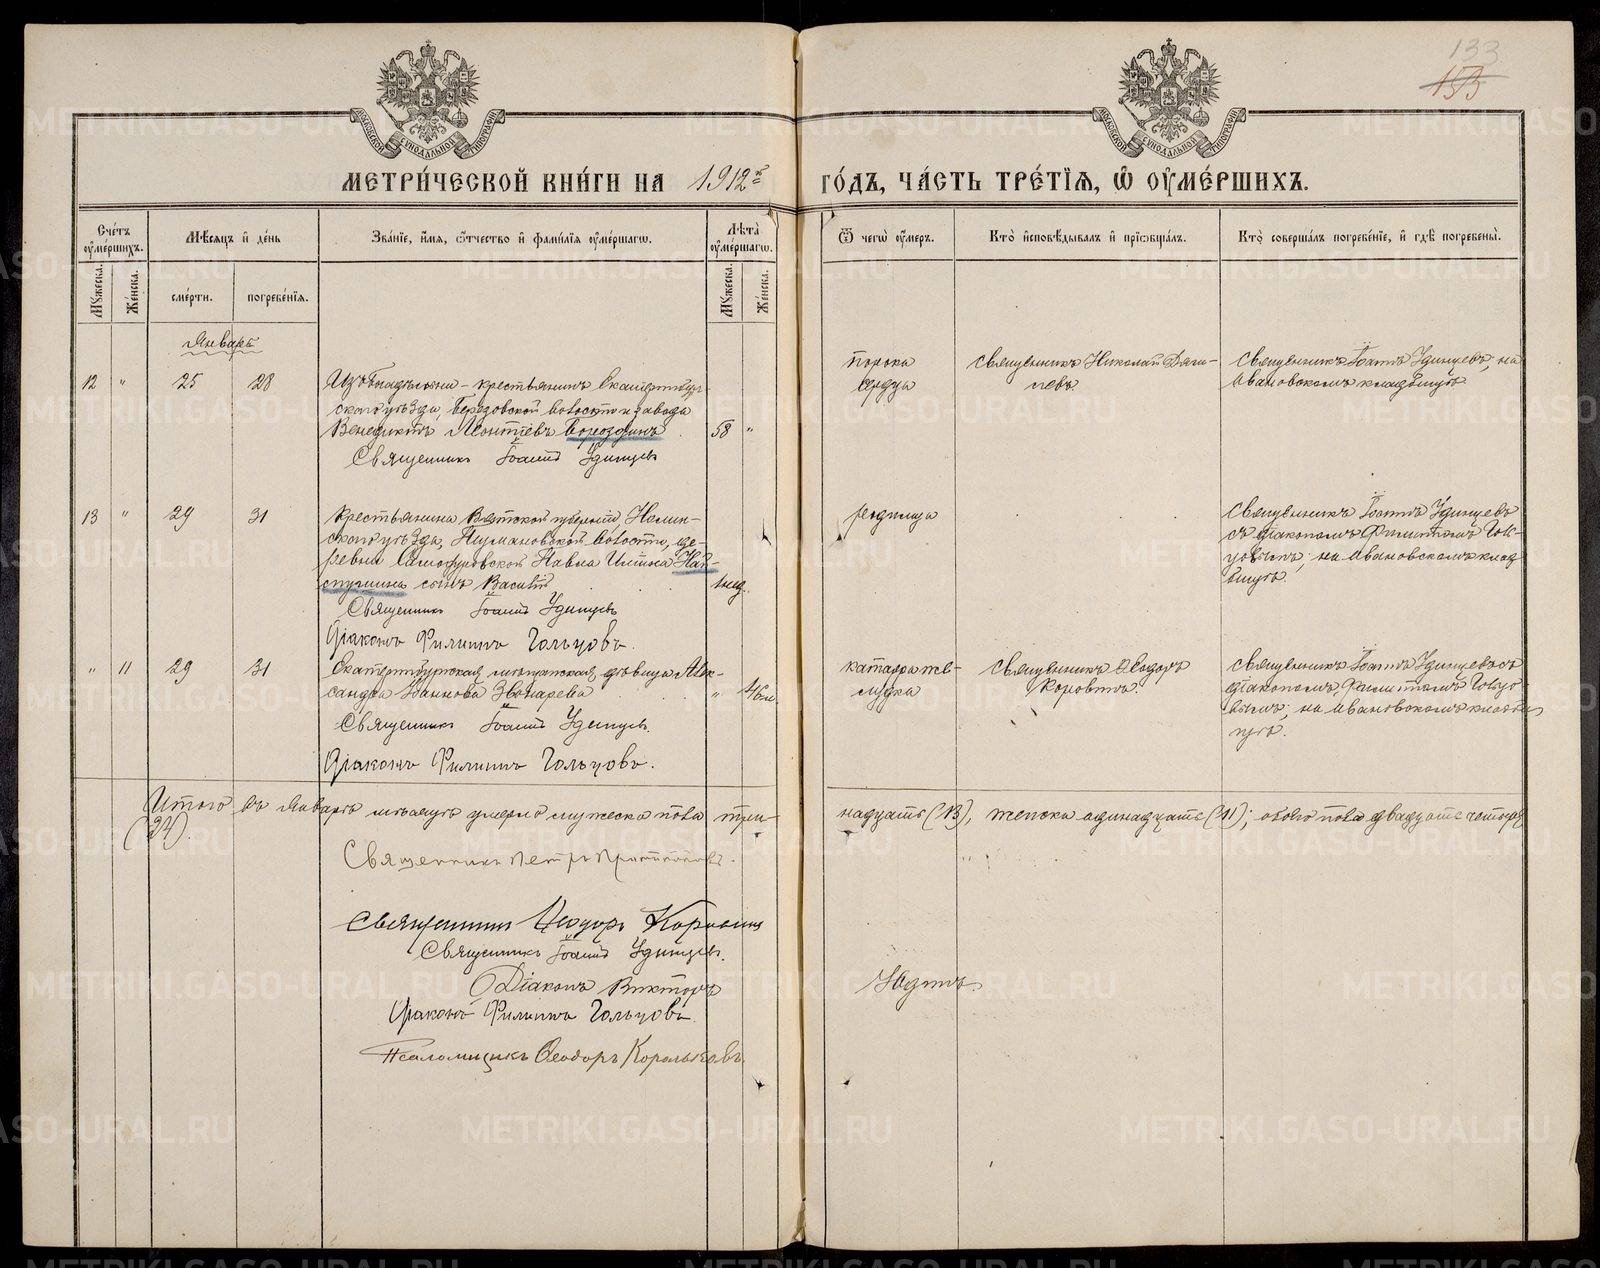 133
153
МЕТРИ́ЧЕСКОЙ КНИ́ГИ НА 1912й ГО́ДЪ, ЧА́СТЬ ТРЕ́ТІЯ, Ѿ ОУМЕ́РШИХЪ.
Сче́тъ оуме́ршихъ.
Мѣсяцъ и де́нь
Зва́ніе, и́мя, о́тчество и фами́лія оуме́ршагѡ.
Лѣта̀ оуме́ршагѡ.
Ѿ чегѡ̀ оу́меръ.
Кто̀ исповѣ́дывалъ и пріѡбща́лъ.
Кто̀ соверша́лъ погребе́ніе, и гдѣ̀ погребены̀.
Мꙋжеска.
Же́нска.
сме́рти.
погребе́нія.
Мꙋжеска.
Же́нска.
Январь
12 " 25 28
крестьянинъ Екатеринбург-
скаго уѣзда, Березовской волости и завода
Венедиктъ Леонтіевъ Бороздинъ 58 "
Священникъ Іоаннъ Удинцевъ
порока
сердца
Священникъ Николай Дяги-
левъ
Священникъ Іоаннъ Удинцевъ, на
Ивановскомъ кладбищѣ
13 " 29 31
Крестьянина Вятской губерніи, Нолин-
скаго уѣзда, волости, де-
ревни Павла Ильина
сынъ Василій 1 нед.
Священникъ Іоаннъ Удинцевъ
Діаконъ Филиппъ Гольцовъ.
родимца
Священникъ Іоаннъ Удинцевъ
съ діакономъ Филиппомъ Голь-
цовымъ; на Ивановскомъ клад-
бищѣ.
" 11 29 31
Екатеринбургская мѣщанская дѣвица Алек-
сандра Иванова Звонарева " 46 л.
Священникъ Іоаннъ Удинцевъ.
Діаконъ Филиппъ Гольцовъ.
катарра же-
лудка
Священникъ Ѳеодоръ
Коровинъ.
Священникъ Іоаннъ Удинцевъ съ
діакономъ Филиппомъ Гольцо-
вымъ; на Ивановскомъ кладби-
щѣ.
Итого въ Январѣ мѣсяцѣ умерло мужеска пола три-
надцать (13), женска одинадцать (11); обоего пола двадцать четыре
(24).
Священникъ Петръ
Священникъ Ѳеодоръ Коровинъ
Священникъ Іоаннъ Удинцевъ.
Діаконъ Викторъ Юдинъ
Діаконъ Филиппъ Гольцовъ.
Псаломщикъ Ѳеодоръ Корольковъ.
METRIKI.GASO-URAL.RU